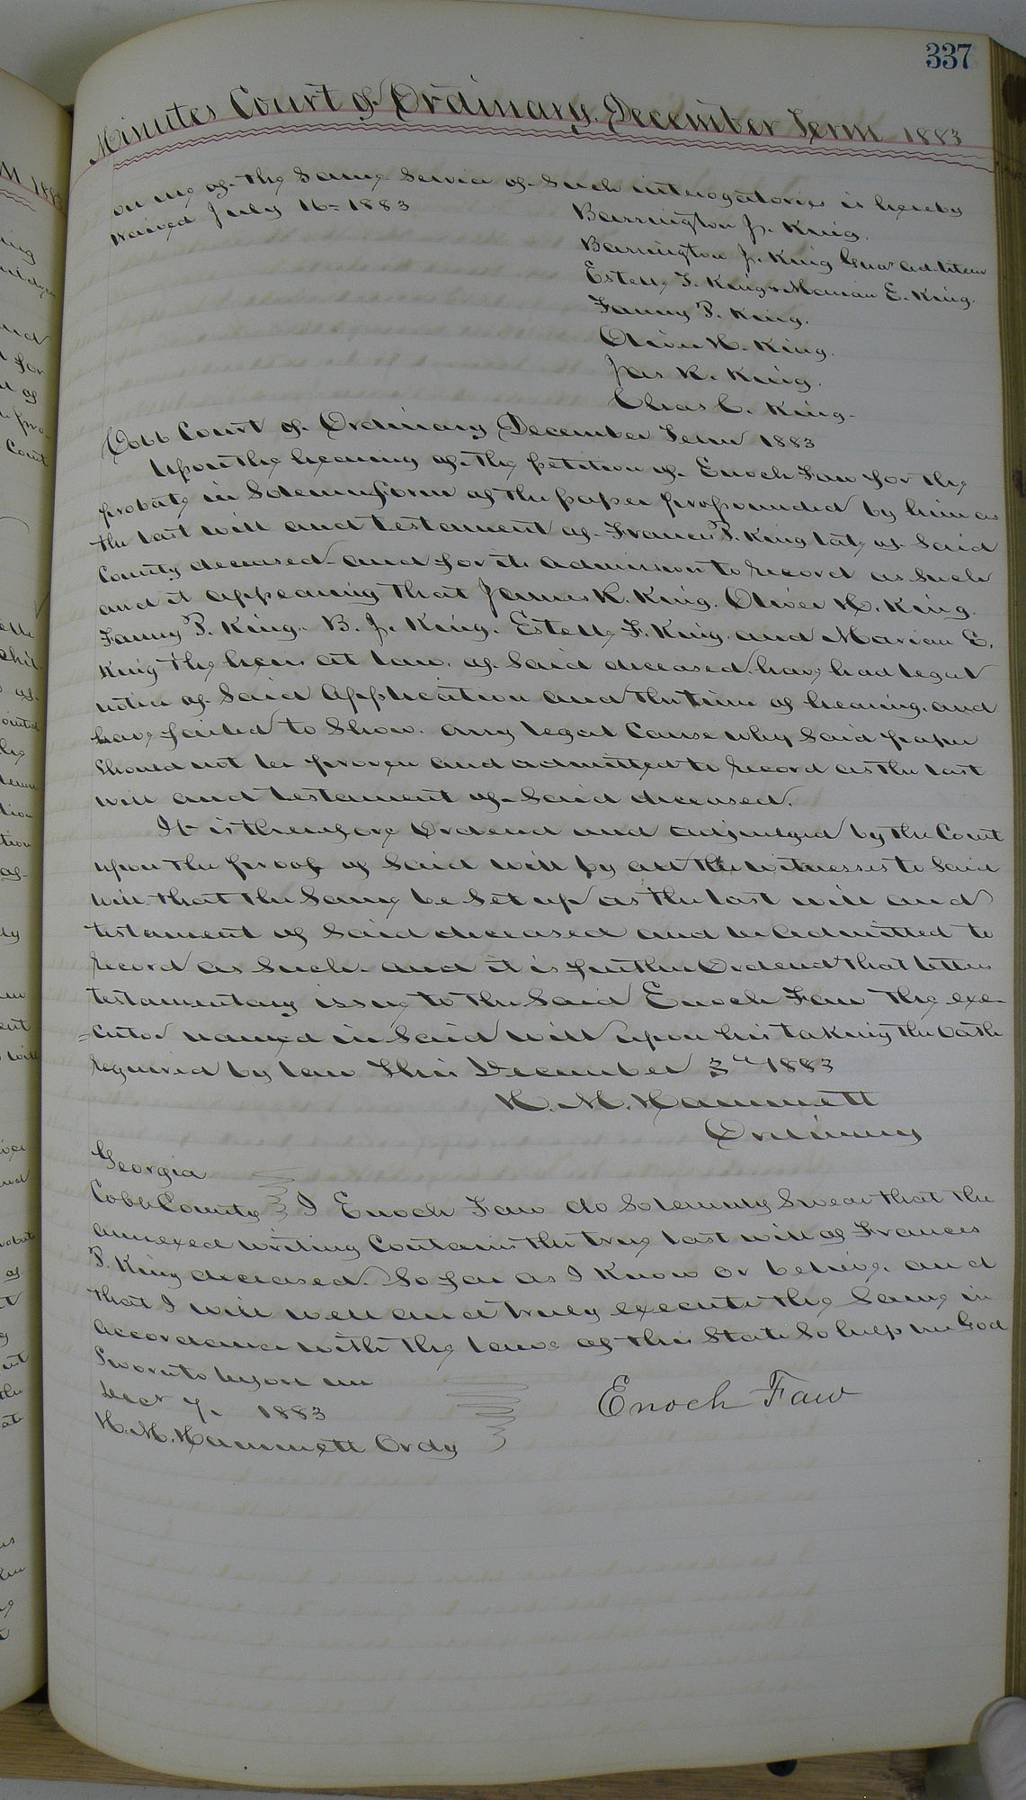 337
Minutes Court of Ordinary, December Term 1883
on me of the same Service of Such interogatories is hereby
waived July 16= 1883
Barrington J. King.
Barrington J. King Guar ad. litem
Estelle F. King & Marian E. King.
Fanny P. King.
Oliver H. King.
Jas R. King.
Chas C. King.
Cobb Court of Ordinary December Term 1883
Upon the hearing of the petition of Enoch Faw for the
probate in Solemn form of the paper propounded by him as
the last will and testament of Frances P. King late of Said
County deceased and for its admission to record as Such
and it appearing that James R. King. Oliver H. King.
Fanny P. King. B. J. King. Estelle F. King. and Marian E.
King the heirs at law. of Said deceased. have had legal
notice of Said application and the time of hearing. and
have failed to Show. any legal Cause why Said paper
Should not be proven and admitted to record as the last
will and testament of Said deceased.
It is therefore Ordered and adjudged by the Court
upon the proof of Said will by all the witnesses to Said
will. that the Same be Set up as the last will and
testament of Said deceased and be admitted to
record as Such. and it is further Ordered that letters
testamentary issue to the Said Enoch Faw the exe-
=cutor named in Said will upon his taking the oath
required by law This December 3rd 1883
H. M. Hammett
Ordinary
Georgia
Cobb County I Enoch Faw do Solemnly Swear that the
annexed writing Contains the true last will of Frances
P. King deceased. So far as I Know or believe. and
that I will well and truly execute the Same in
accordance with the laws of this State So help me God
Sworn to before me
Decr 7. 1883
Enoch Faw
H. M. Hammett Ordy